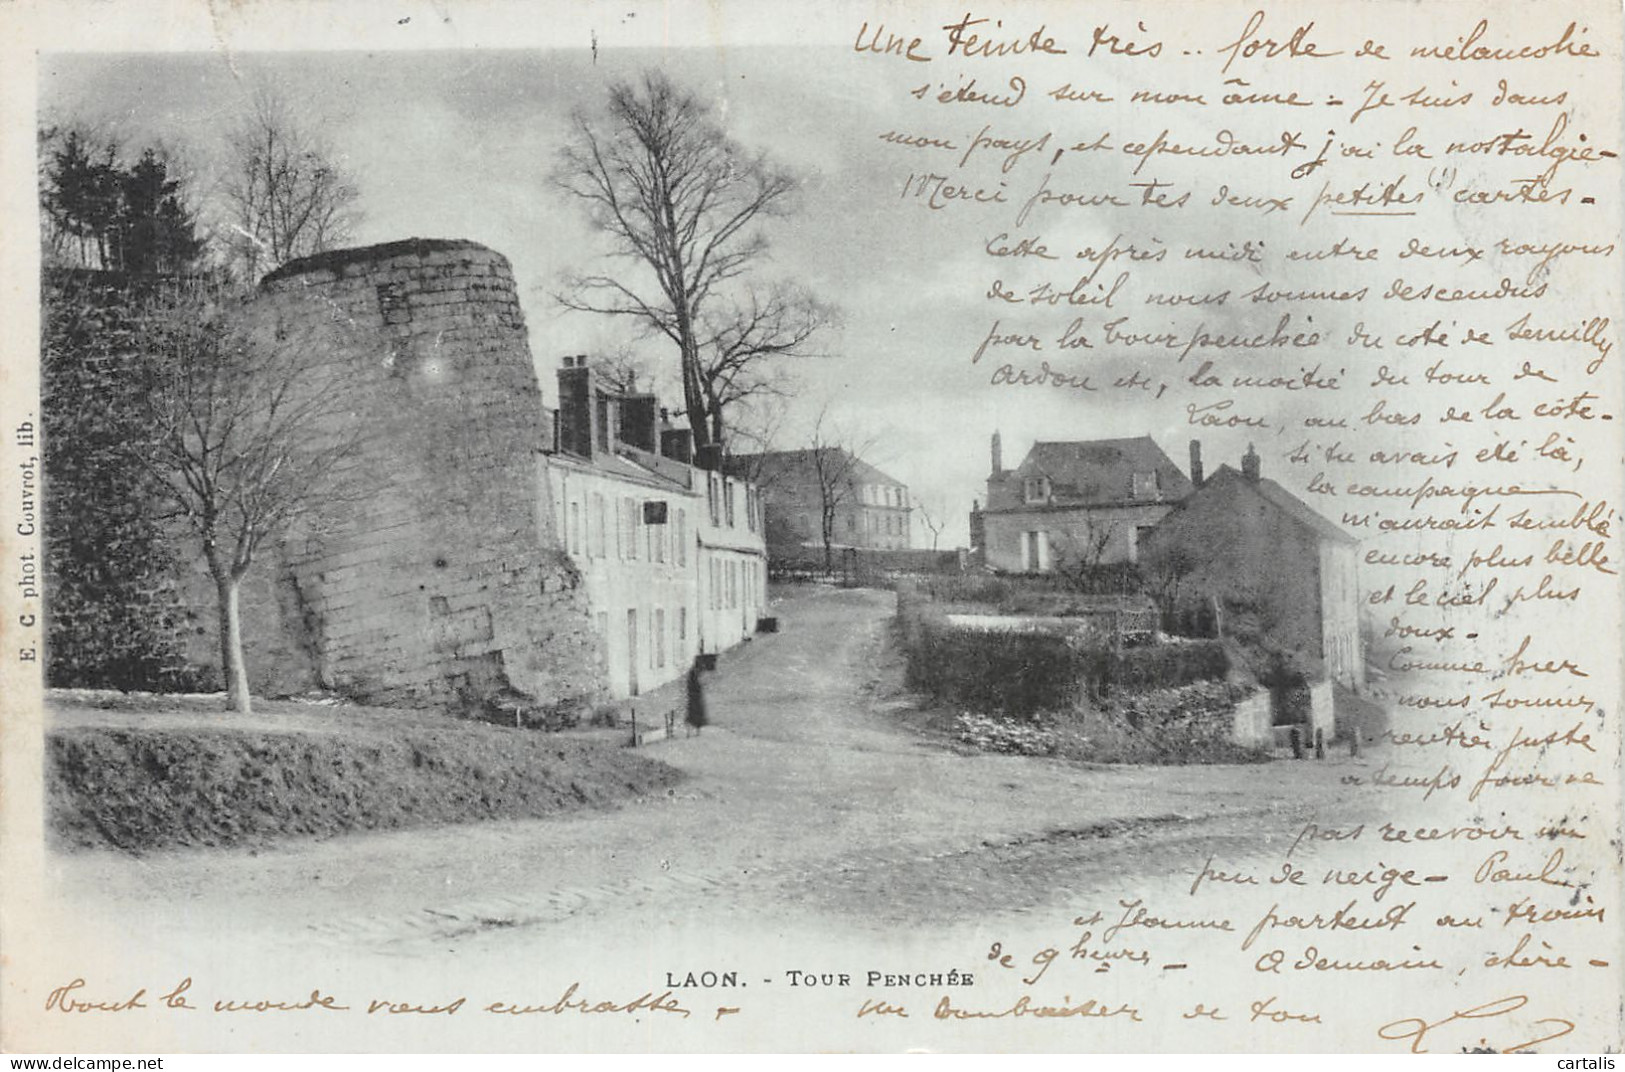 Une teinte très .. forte de mélancolie
s'étend sur mon âme = Je suis dans
mon pays, et cependant j'ai la nostalgie -
Merci pour tes deux petites (!) cartes -
Cette après midi entre deux rayons
de soleil nous sommes descendus
par la Tour penchée du côté de Semilly
Ardon etc, la moitié du tour de
Laon, au bas de la côte -
si tu avais été là,
la campagne
m'aurait semblé
encore plus belle
et le ciel plus
doux -
Comme hier
nous sommes
rentrés juste
a temps pour ne
pas recevoir un
peu de neige - Paul
et Jeanne partent au train
de 9 heures - A demain, chère -
un bon baiser de ton
Tout le monde vous embrasse -
LAON. - TOUR PENCHÉE
E. C phot. Couvrot, lib.
cartalis